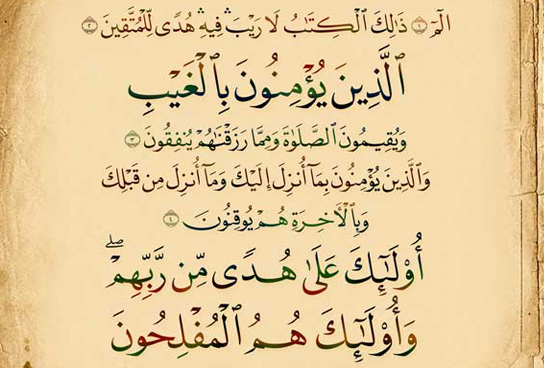 الٓمٓ ۝١ ذَٰلِكَ ٱلۡكِتَٰبُ لَا رَيۡبَۛ فِيهِۛ هُدٗى لِّلۡمُتَّقِينَ ۝٢
ٱلَّذِينَ يُؤۡمِنُونَ بِٱلۡغَيۡبِ
وَيُقِيمُونَ ٱلصَّلَوٰةَ وَمِمَّا رَزَقۡنَٰهُمۡ يُنفِقُونَ ۝٣
وَٱلَّذِينَ يُؤۡمِنُونَ بِمَآ أُنزِلَ إِلَيۡكَ وَمَآ أُنزِلَ مِن قَبۡلِكَ
وَبِٱلۡأٓخِرَةِ هُمۡ يُوقِنُونَ ۝٤
أُوْلَٰٓئِكَ عَلَىٰ هُدٗى مِّن رَّبِّهِمۡۖ
وَأُوْلَٰٓئِكَ هُمُ ٱلۡمُفۡلِحُونَ